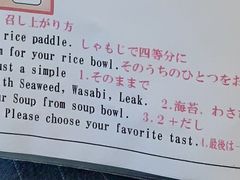 召し上がり方
rice paddle. しゃもじで四等分に
for your rice bowl. そのうちのひとつをお
ust a simple 1.そのままで
th Seaweed, Wasabi, Leak. 2.海苔、わさ
r Soup from soup bowl. 3.2+だし
Please choose your favorite tast. 4.最後は